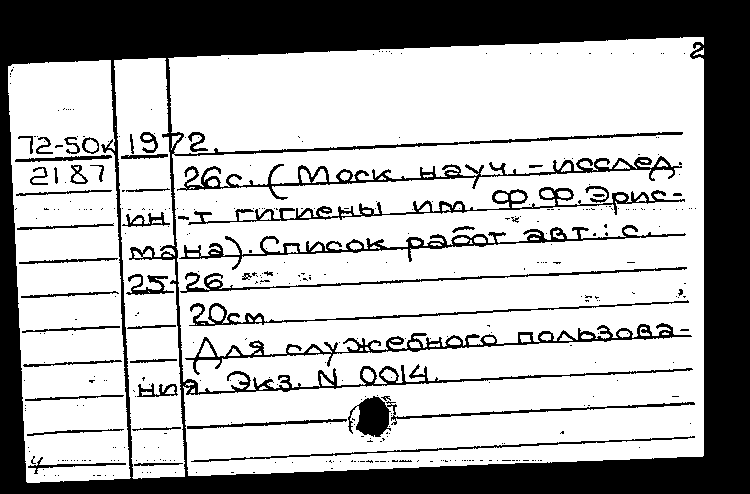 2
72-50к 1972.
2187 26с. (Моск. науч.-исслед.
ин-т гигиены им. Ф.Ф.Эрис-
мана). Список работ авт.: с.
25-26.
20см.
Для служебного пользова-
ния. Экз. N 0014.
4